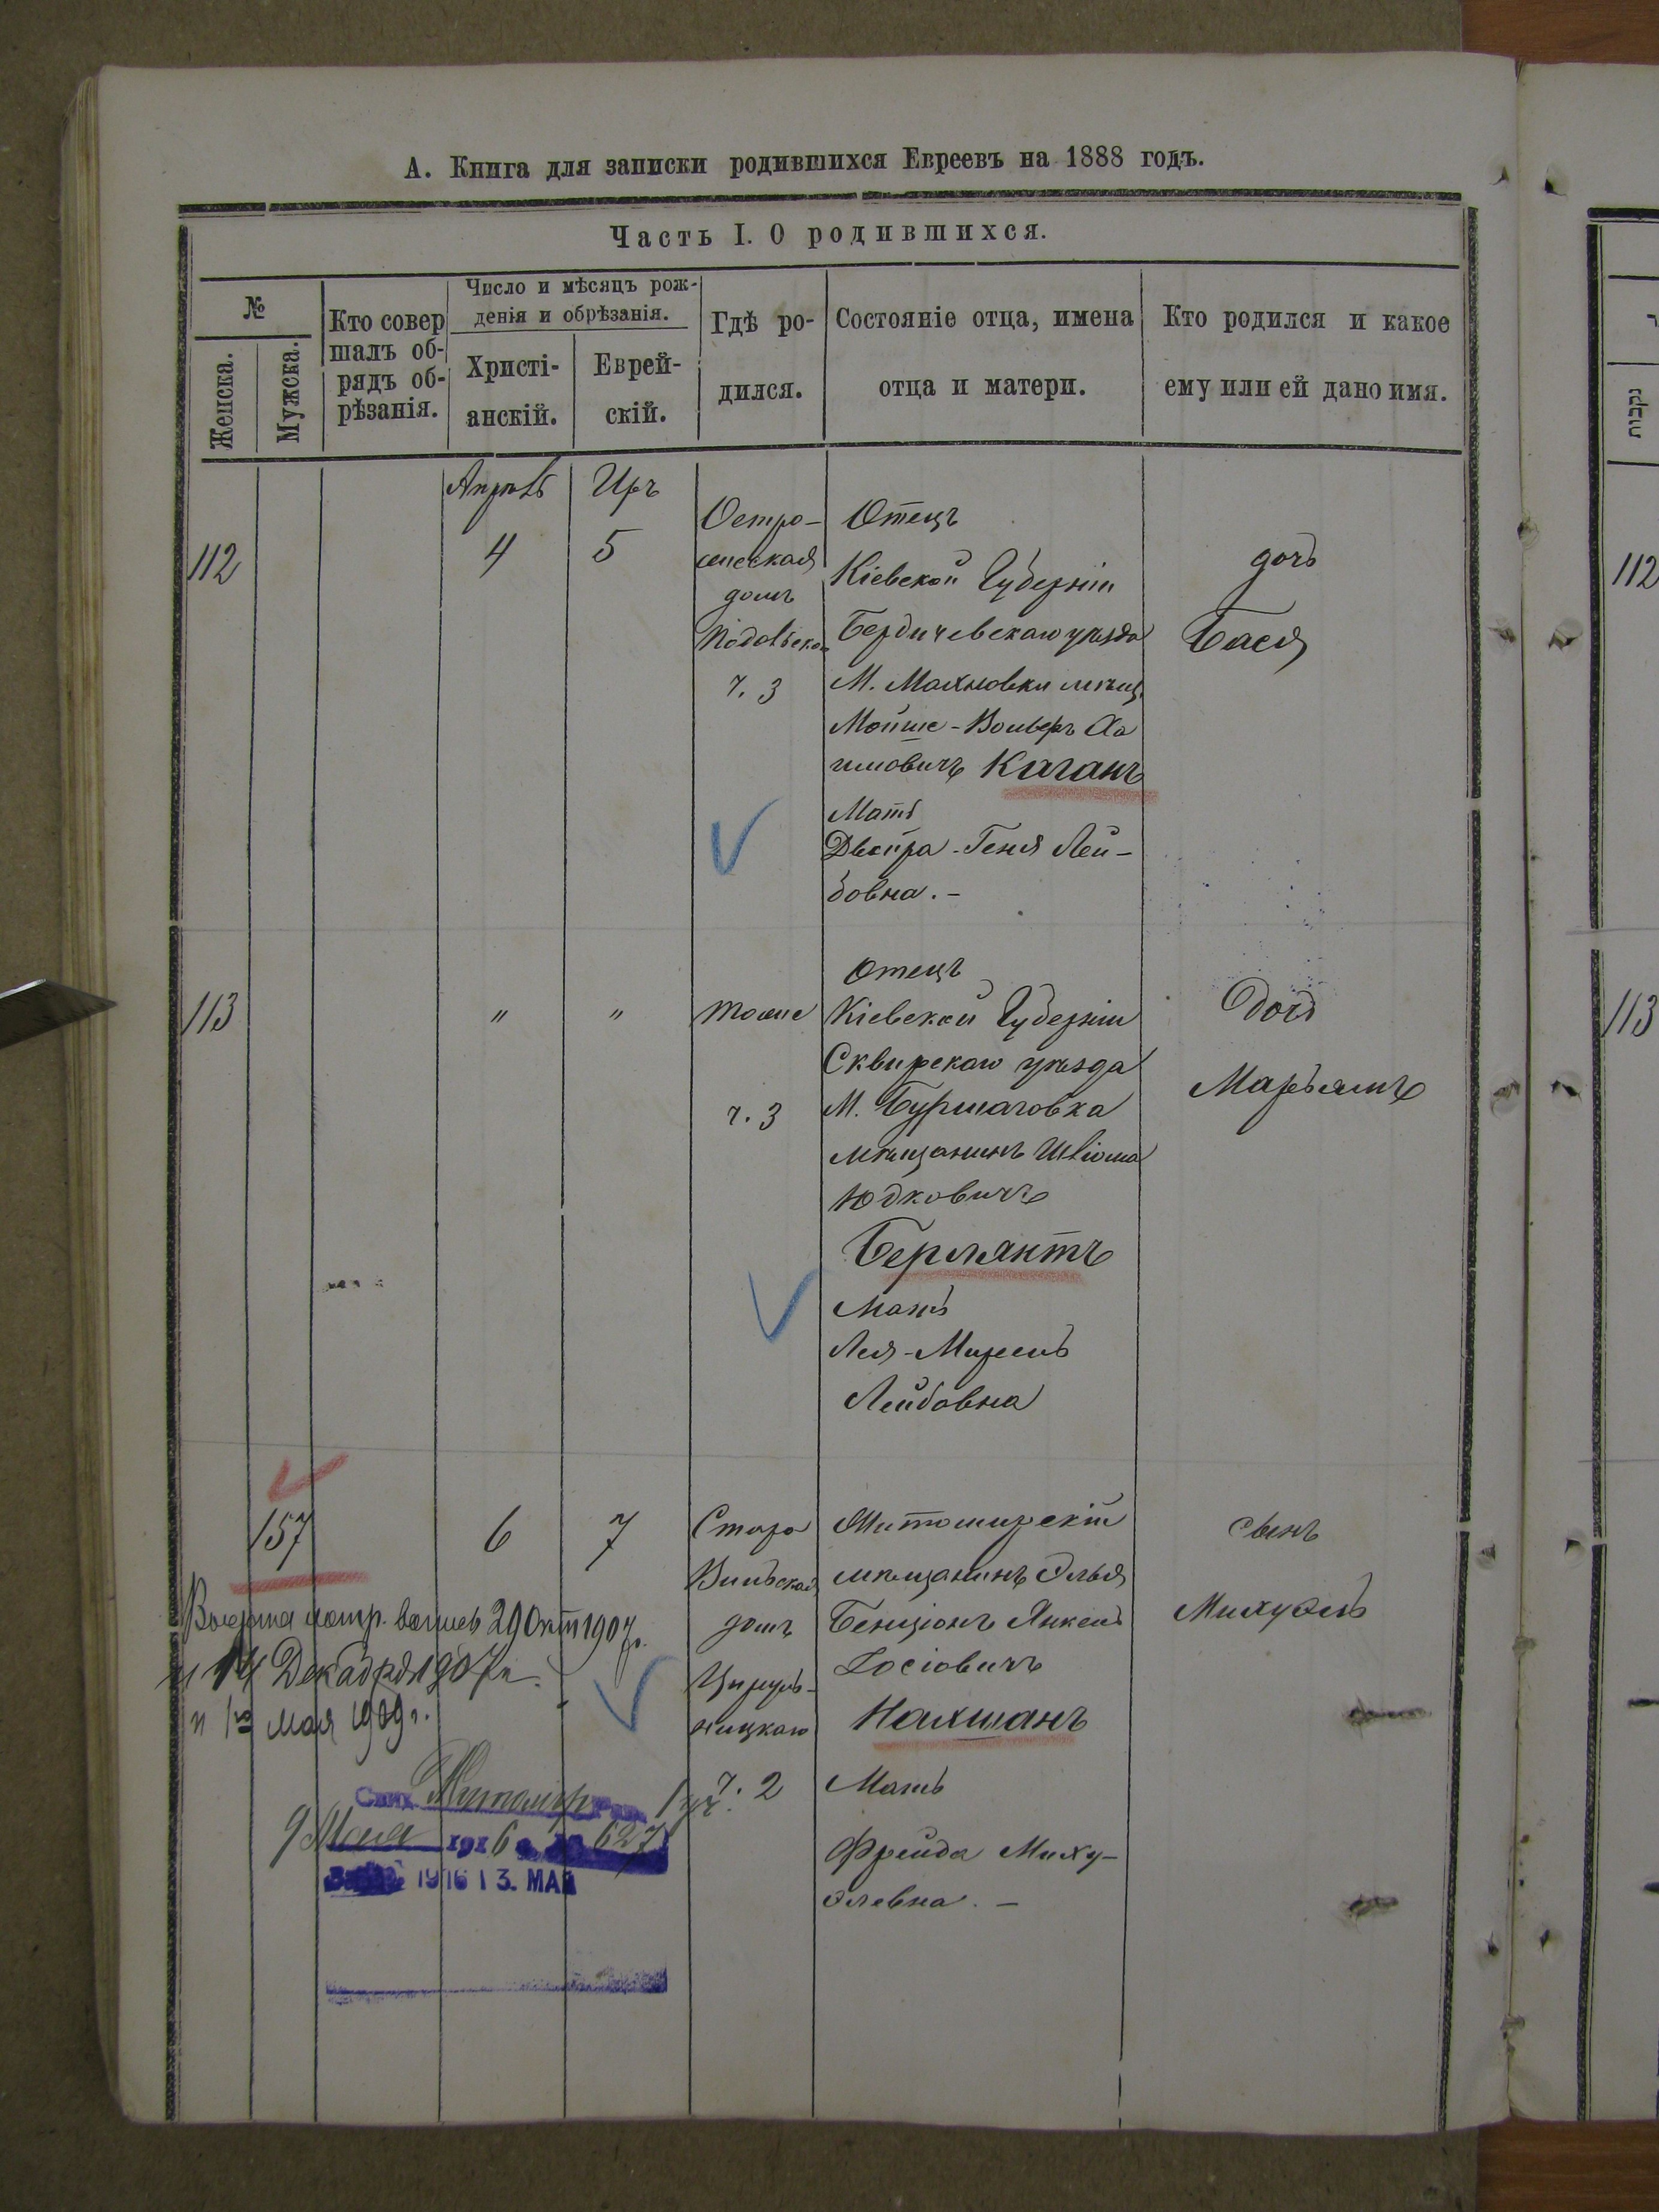 А. Книга для записки родившихся Евреевъ на 1888 годъ.
Часть I. О родившихся.
№
Женска.
Мужска.
Кто совер
шалъ об-
рядъ об-
рѣзанія.
Число и мѣсяцъ рож-
денія и обрѣзанія.
Христі-
анскій.
Еврей-
скій.
Гдѣ ро-
дился.
Состояніе отца, имена
отца и матери.
Кто родился и какое
ему или ей дано имя.
נקבות
112
Апрѣль
4
Иръ
5
Остро-
домъ
ч. 3
Отецъ
Кіевской Губерніи
Бердичевскаго уѣзда
М. Махновки мѣщ.
Мойше-Вольфъ Ха
имовичъ Каганъ
Мать
Двойра-Геня Лей-
бовна. -
дочь
Бася
112
113
"
"
тоже
ч. 3
Отецъ
Кіевской Губерніи
Сквирскаго уѣзда
М. Буршаговка
мѣщанинъ Шліома
Юдковичъ
Берлянтъ
Мать
Лея-Мирель
Лейбовна
Дочь
Марьямъ
113
157
6
7
Старо
Вильская
домъ
Цируль-
ницкаго
ч. 2
Житомирскій
мѣщанинъ Элья
Бенціонъ Янкель
Іосіовичъ
Нахманъ
Мать
Фрейда Миху-
элевна. -
сынъ
Михуэль
29 Окт 1907г.
и 14 Декабря 1907г.
и 1го мая 1909г.
Житомир
9 Мая 1916 627
1916 13. МАЯ